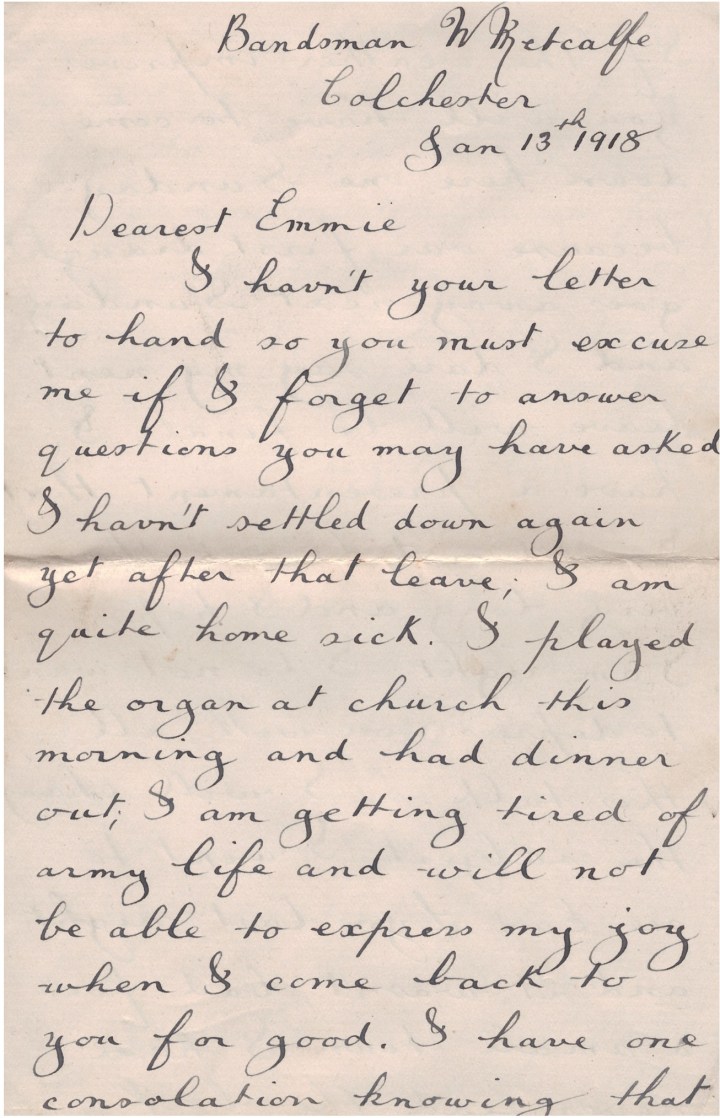 Bandsman W Metcalfe
Colchester
Jan 13th 1918
Dearest Emmie
I havn't your letter
to hand so you must excuse
me if I forget to answer
questions you may have asked
I havn't settled down again
yet after that leave; I am
quite home sick. I played
the organ at church this
morning and had dinner
out; I am getting tired of
army life and will not
be able to express my joy
when I come back to
you for good. I have one
consolation knowing that